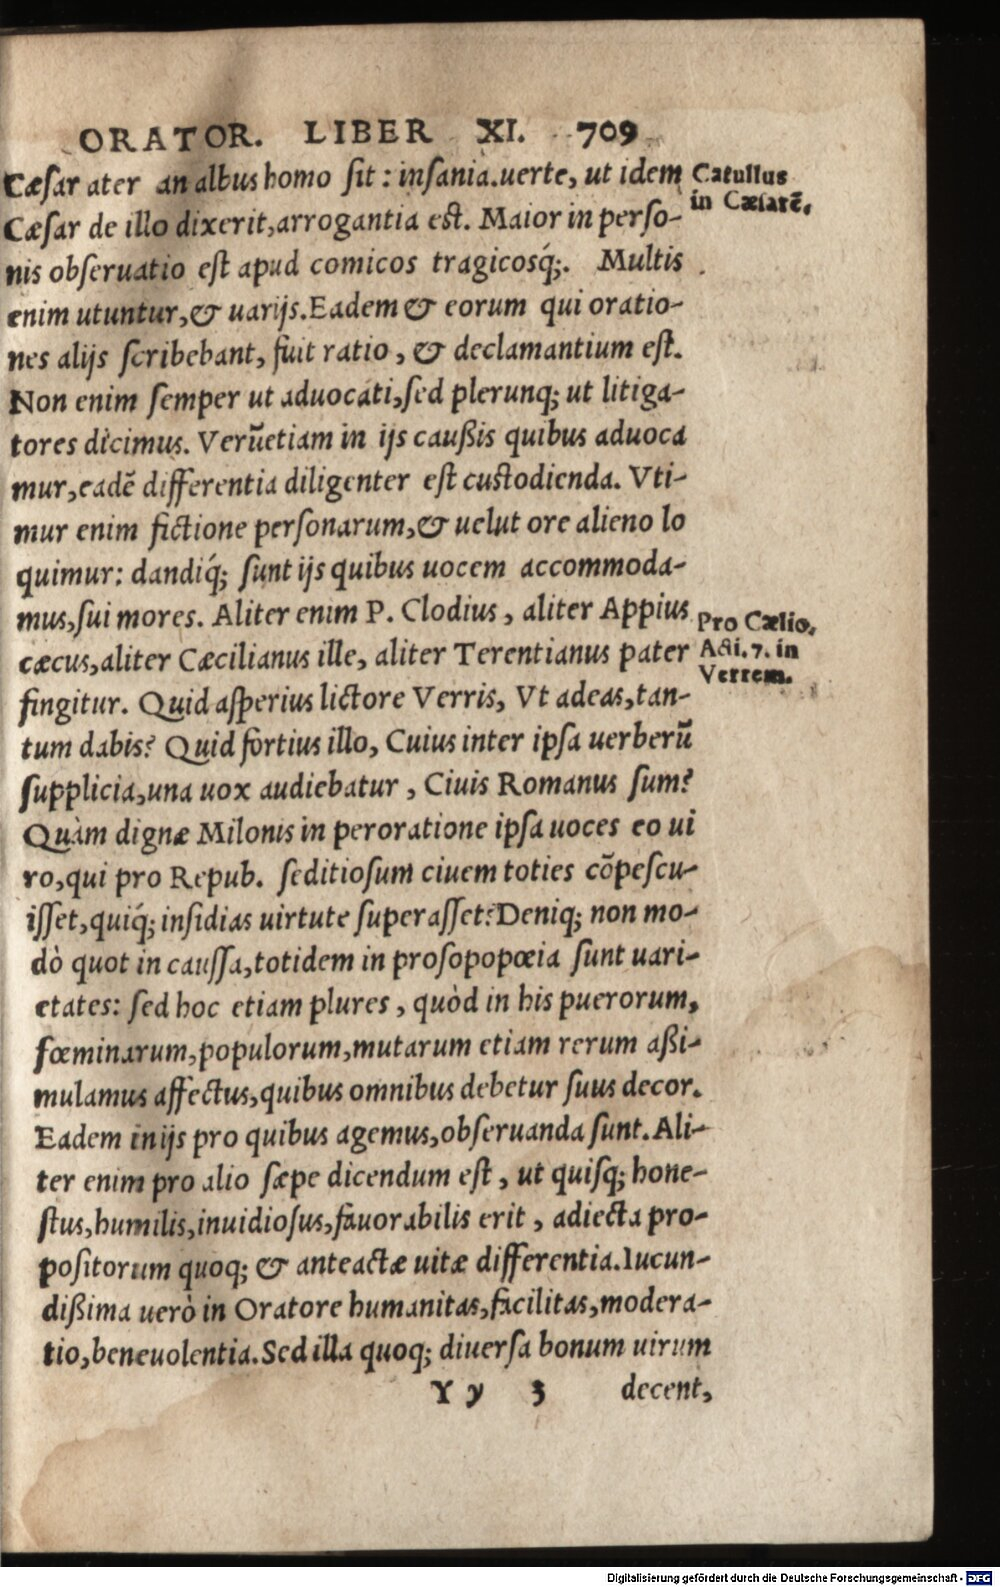 ORATOR. LIBER XI. 709
Cæsar ater an albus homo sit: insania. uerte, ut idem
Catullus
in Cæsarē.
Cæsar de illo dixerit, arrogantia est. Maior in perso-
nis obseruatio est apud comicos tragicosq́;. Multis
enim utuntur, & uarijs. Eadem & eorum qui oratio-
nes alijs scribebant, fuit ratio, & declamantium est.
Non enim semper ut aduocati, sed plerunq; ut litiga-
tores dicimus. Verũetiam in ijs caußis quibus aduoca
mur, eadē differentia diligenter est custodienda. Vti-
mur enim fictione personarum, & uelut ore alieno lo
quimur: dandiq́; sunt ijs quibus uocem accommoda-
mus, sui mores. Aliter enim P. Clodius, aliter Appius
Pro Cælio.
Acti. 7. in
Verrem.
cæcus, aliter Cæcilianus ille, aliter Terentianus pater
fingitur. Quid asperius lictore Verris, Vt adeas, tan-
tum dabis? Quid fortius illo, Cuius inter ipsa uerberũ
supplicia, una uox audiebatur, Ciuis Romanus sum?
Quàm dignæ Milonis in peroratione ipsa uoces eo ui
ro, qui pro Repub. seditiosum ciuem toties cõpescu-
isset, quiq́; insidias uirtute superasset? Deniq; non mo-
dò quot in caussa, totidem in prosopopœia sunt uari-
etates: sed hoc etiam plures, quòd in his puerorum,
fœminarum, populorum, mutarum etiam rerum aßi-
mulamus affectus, quibus omnibus debetur suus decor.
Eadem in ijs pro quibus agemus, obseruanda sunt. Ali-
ter enim pro alio sæpe dicendum est, ut quisq; hone-
stus, humilis, inuidiosus, fauorabilis erit, adiecta pro-
positorum quoq; & anteactæ uitæ differentia. Iucun-
dißima uerò in Oratore humanitas, facilitas, modera-
tio, beneuolentia. Sed illa quoq; diuersa bonum uirum
Y y 3 decent,
Digitalisierung gefördert durch die Deutsche Forschungsgemeinschaft - DFG